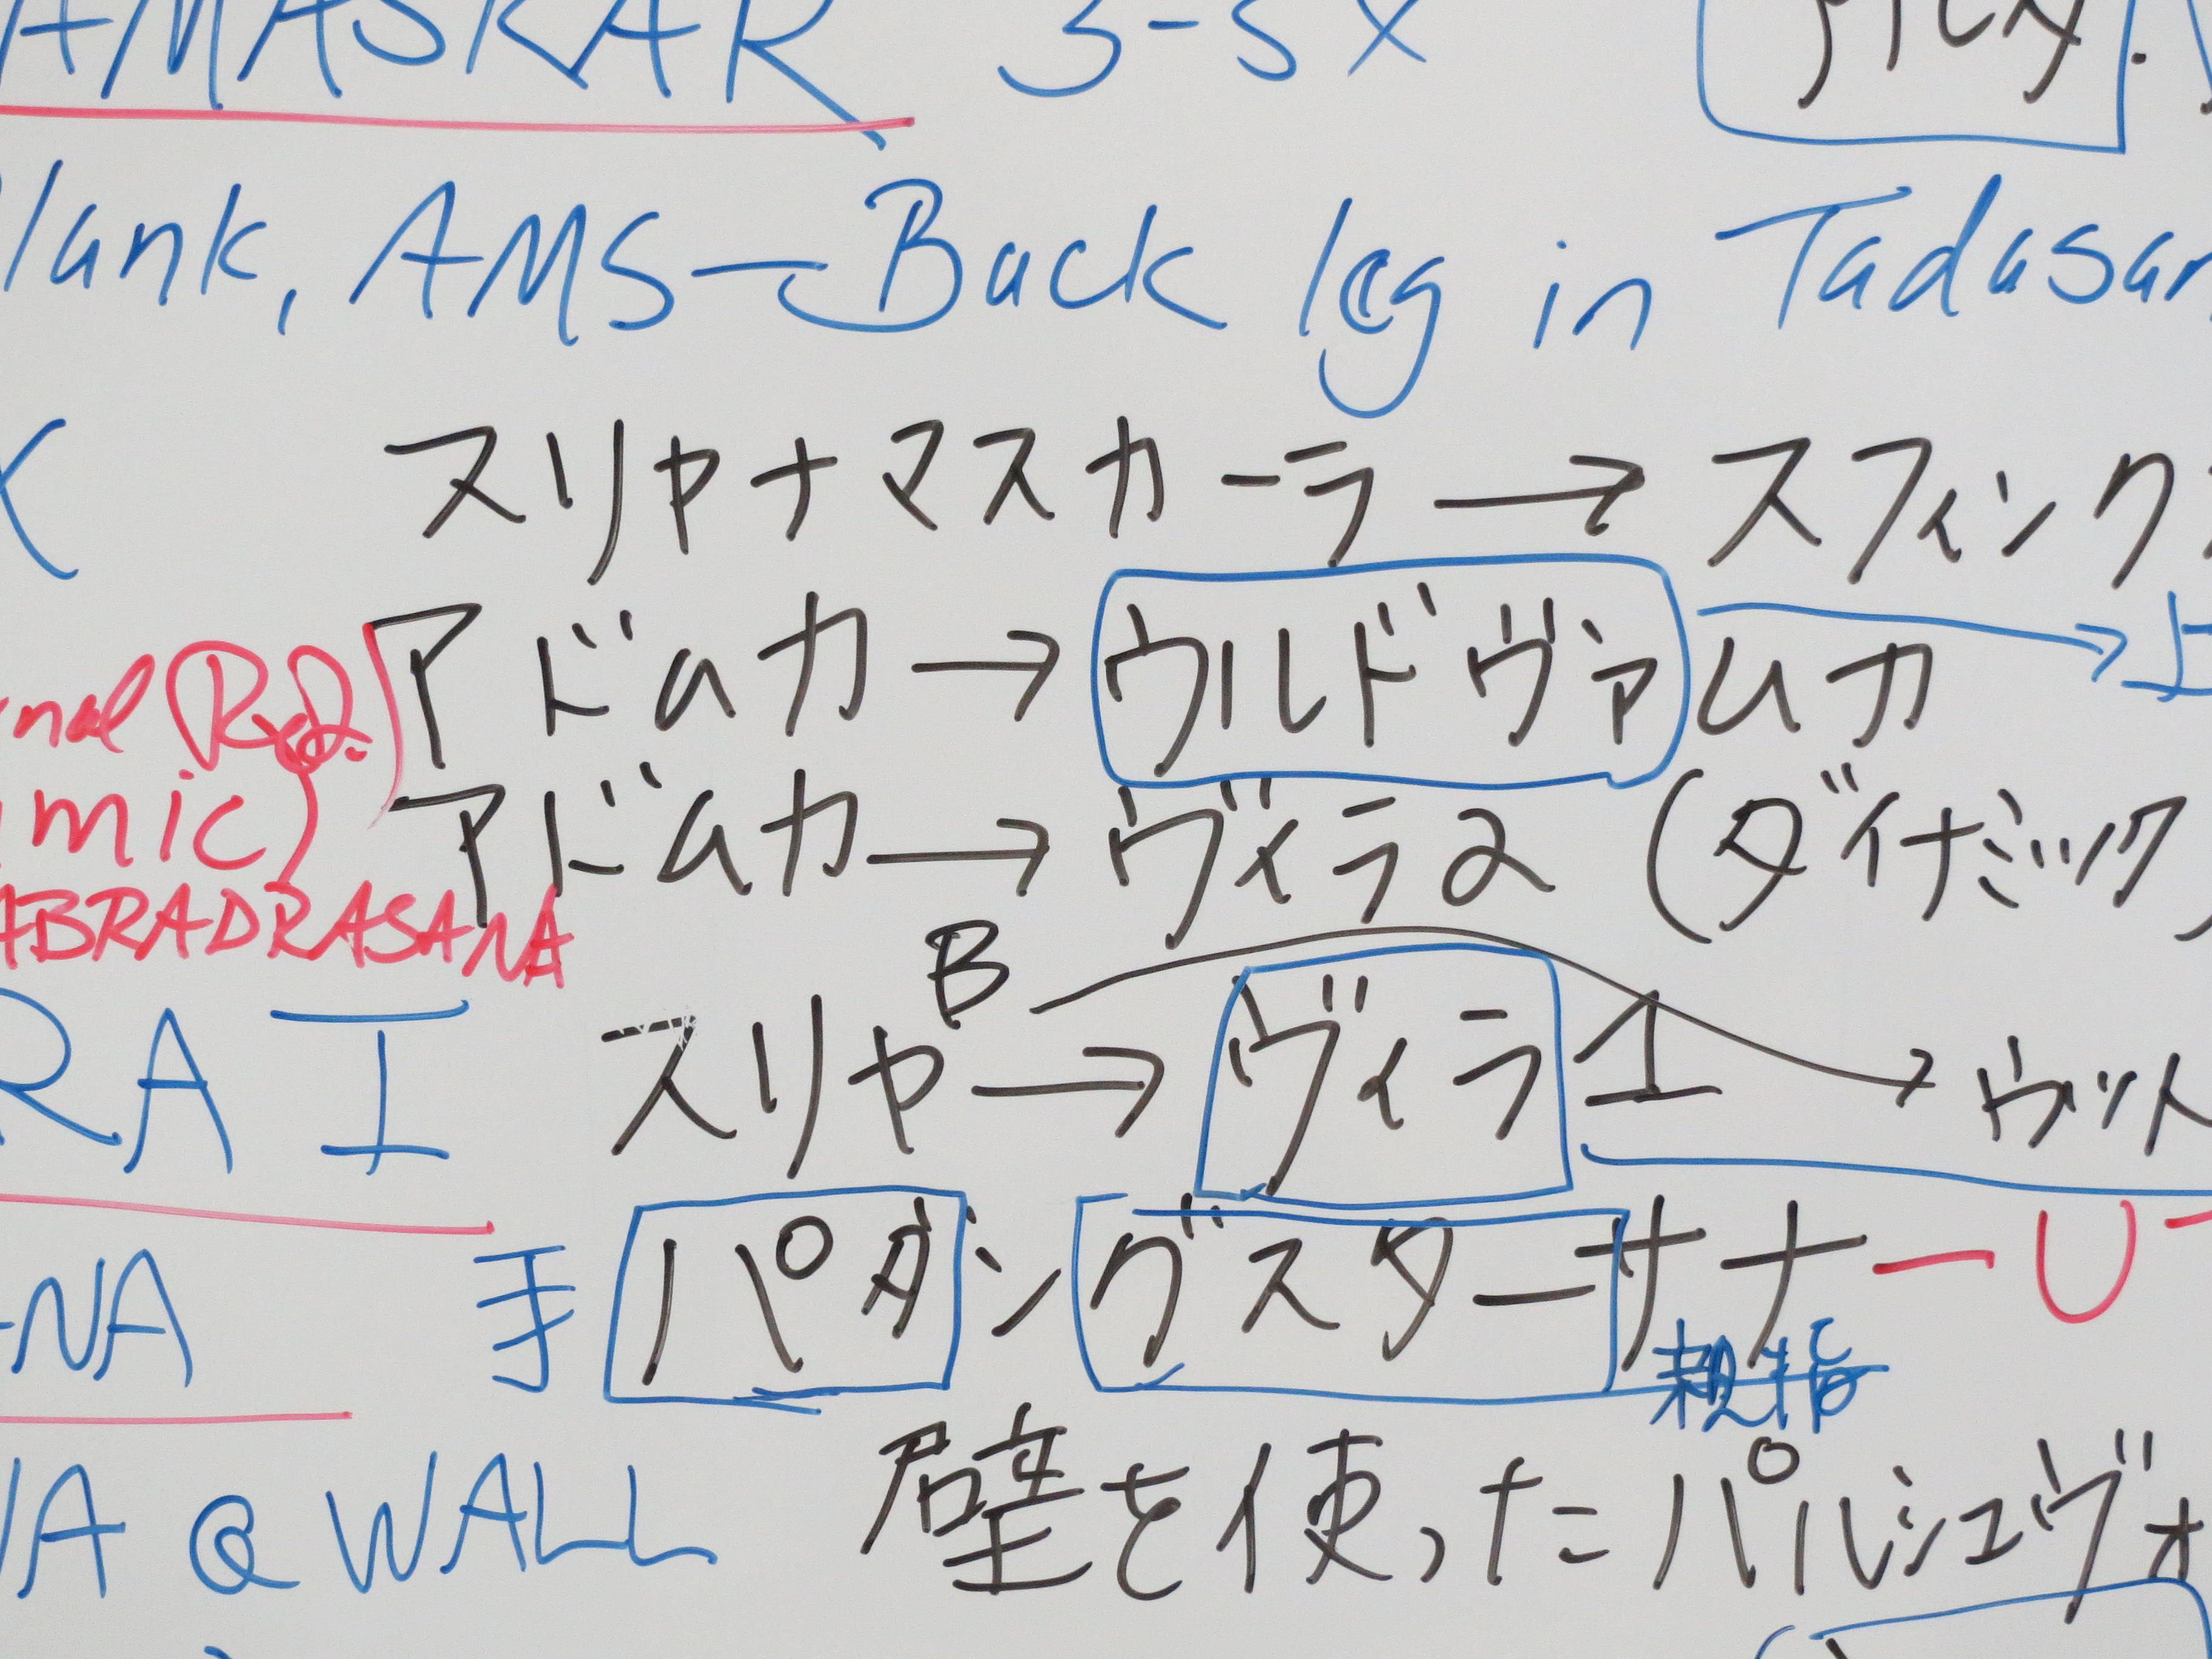 AMASKAR 3-5X
lank, AMS—Back leg in Tadasan
X スリヤナマスカーラ → スフィンク
アドムカ → ウルドヴァムカ → 上
nal Red.
アドムカ → ヴィラ2 (ダイナミック)
mic)
ABRADRASANA
RA I スリヤB → ヴィラ1 → ウット
NA 手 パダングスターサナ — U
親指
A @ WALL 壁を使ったパルシュヴォ